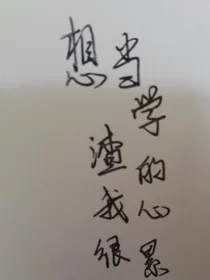 想当学
渣的
我心
很累